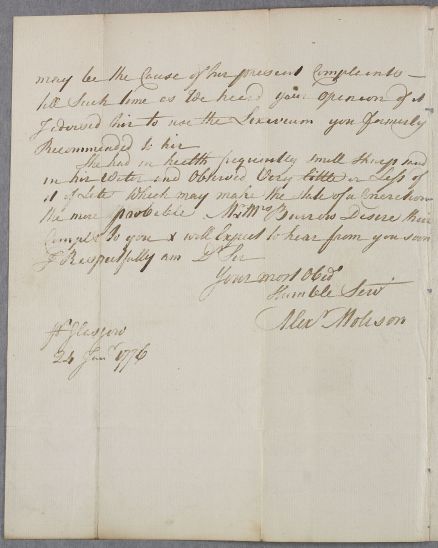 may be the Cause of her present Complaints –
till Such time as We heard your Openion of it
I advised her to use the Lixivium you formerly
Recommended to her
She had in health frequently small in
in her Water and Observed Very little or Less of
it of Late Which may make the of a Concretion
the more probable Mr & Mrs Burrows Desire their
Complts to you & will Expect to hear from you soon
I Respectfully am Dr Sir
Your most Obedt
Humble Servt
Alexr
Pt Glasgow
24 Janr 1776